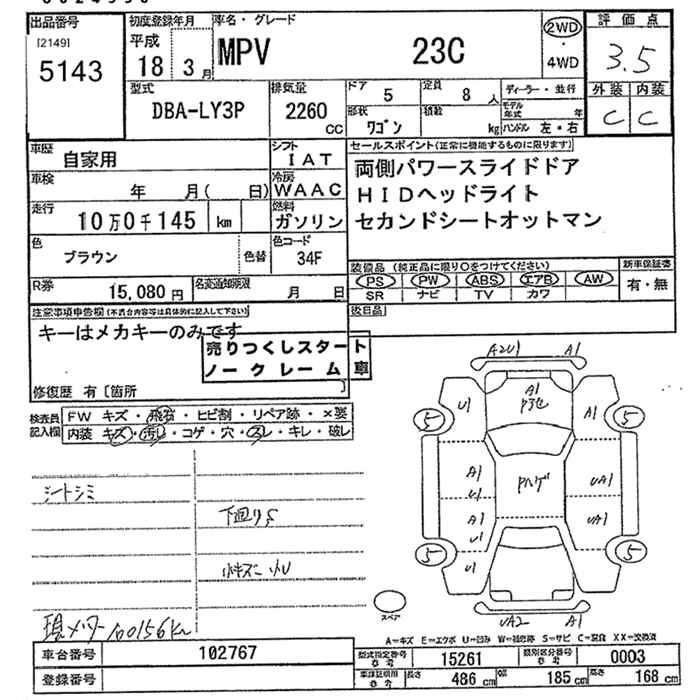 出品番号
[2149]
5143
初度登録年月
平成
18 3月
車名・グレード
MPV 23C
2WD
・
4WD
評価点
3.5
外装 内装
C C
型式
DBA-LY3P
排気量
2260
CC
ドア
5
定員
8 人
形状
ワゴン
積載
kg
ディーラー・並行
モデル年式 年
ハンドル 左・右
車歴
自家用
シフト
IAT
車検
年 月( 日)
冷房
WAAC
走行
10万0千145 km
燃料
ガソリン
色
ブラウン
色替
色コード
34F
R券
15,080 円
名変通知期限
月 日
セールスポイント(正常に機能するものに限ります)
両側パワースライドドア
HIDヘッドライト
セカンドシートオットマン
装備品 (純正品に限り○をつけてください)
PS PW ABS エアB AW
SR ナビ TV カワ
新車保証書
有・無
後日品
注意事項申告欄(不具合内容等は具体的に記入して下さい)
キーはメカキーのみです
売りつくしスタート
ノークレーム車
修復歴 有〔箇所 〕
検査員記入欄
FW キズ・飛石・ヒビ割・リペア跡・×要
内装 キズ・汚れ・コゲ・穴・スレ・キレ・破レ
シートシミ
下回りS
現メーター100156Km
A2U1 A1
U1
A1
A1
5
5
A1
U1
A1
U1
U1
UA1
UA1
5
5
スペア
UA2 A1
A=キズ E=エクボ U=凹み W=補修跡 S=サビ C=腐食 XX=交換済
車台番号
102767
登録番号
型式指定番号
参考
15261
類別区分番号
参考
0003
車検証記載
参考
長さ 486 cm
幅 185 cm
高さ 168 cm